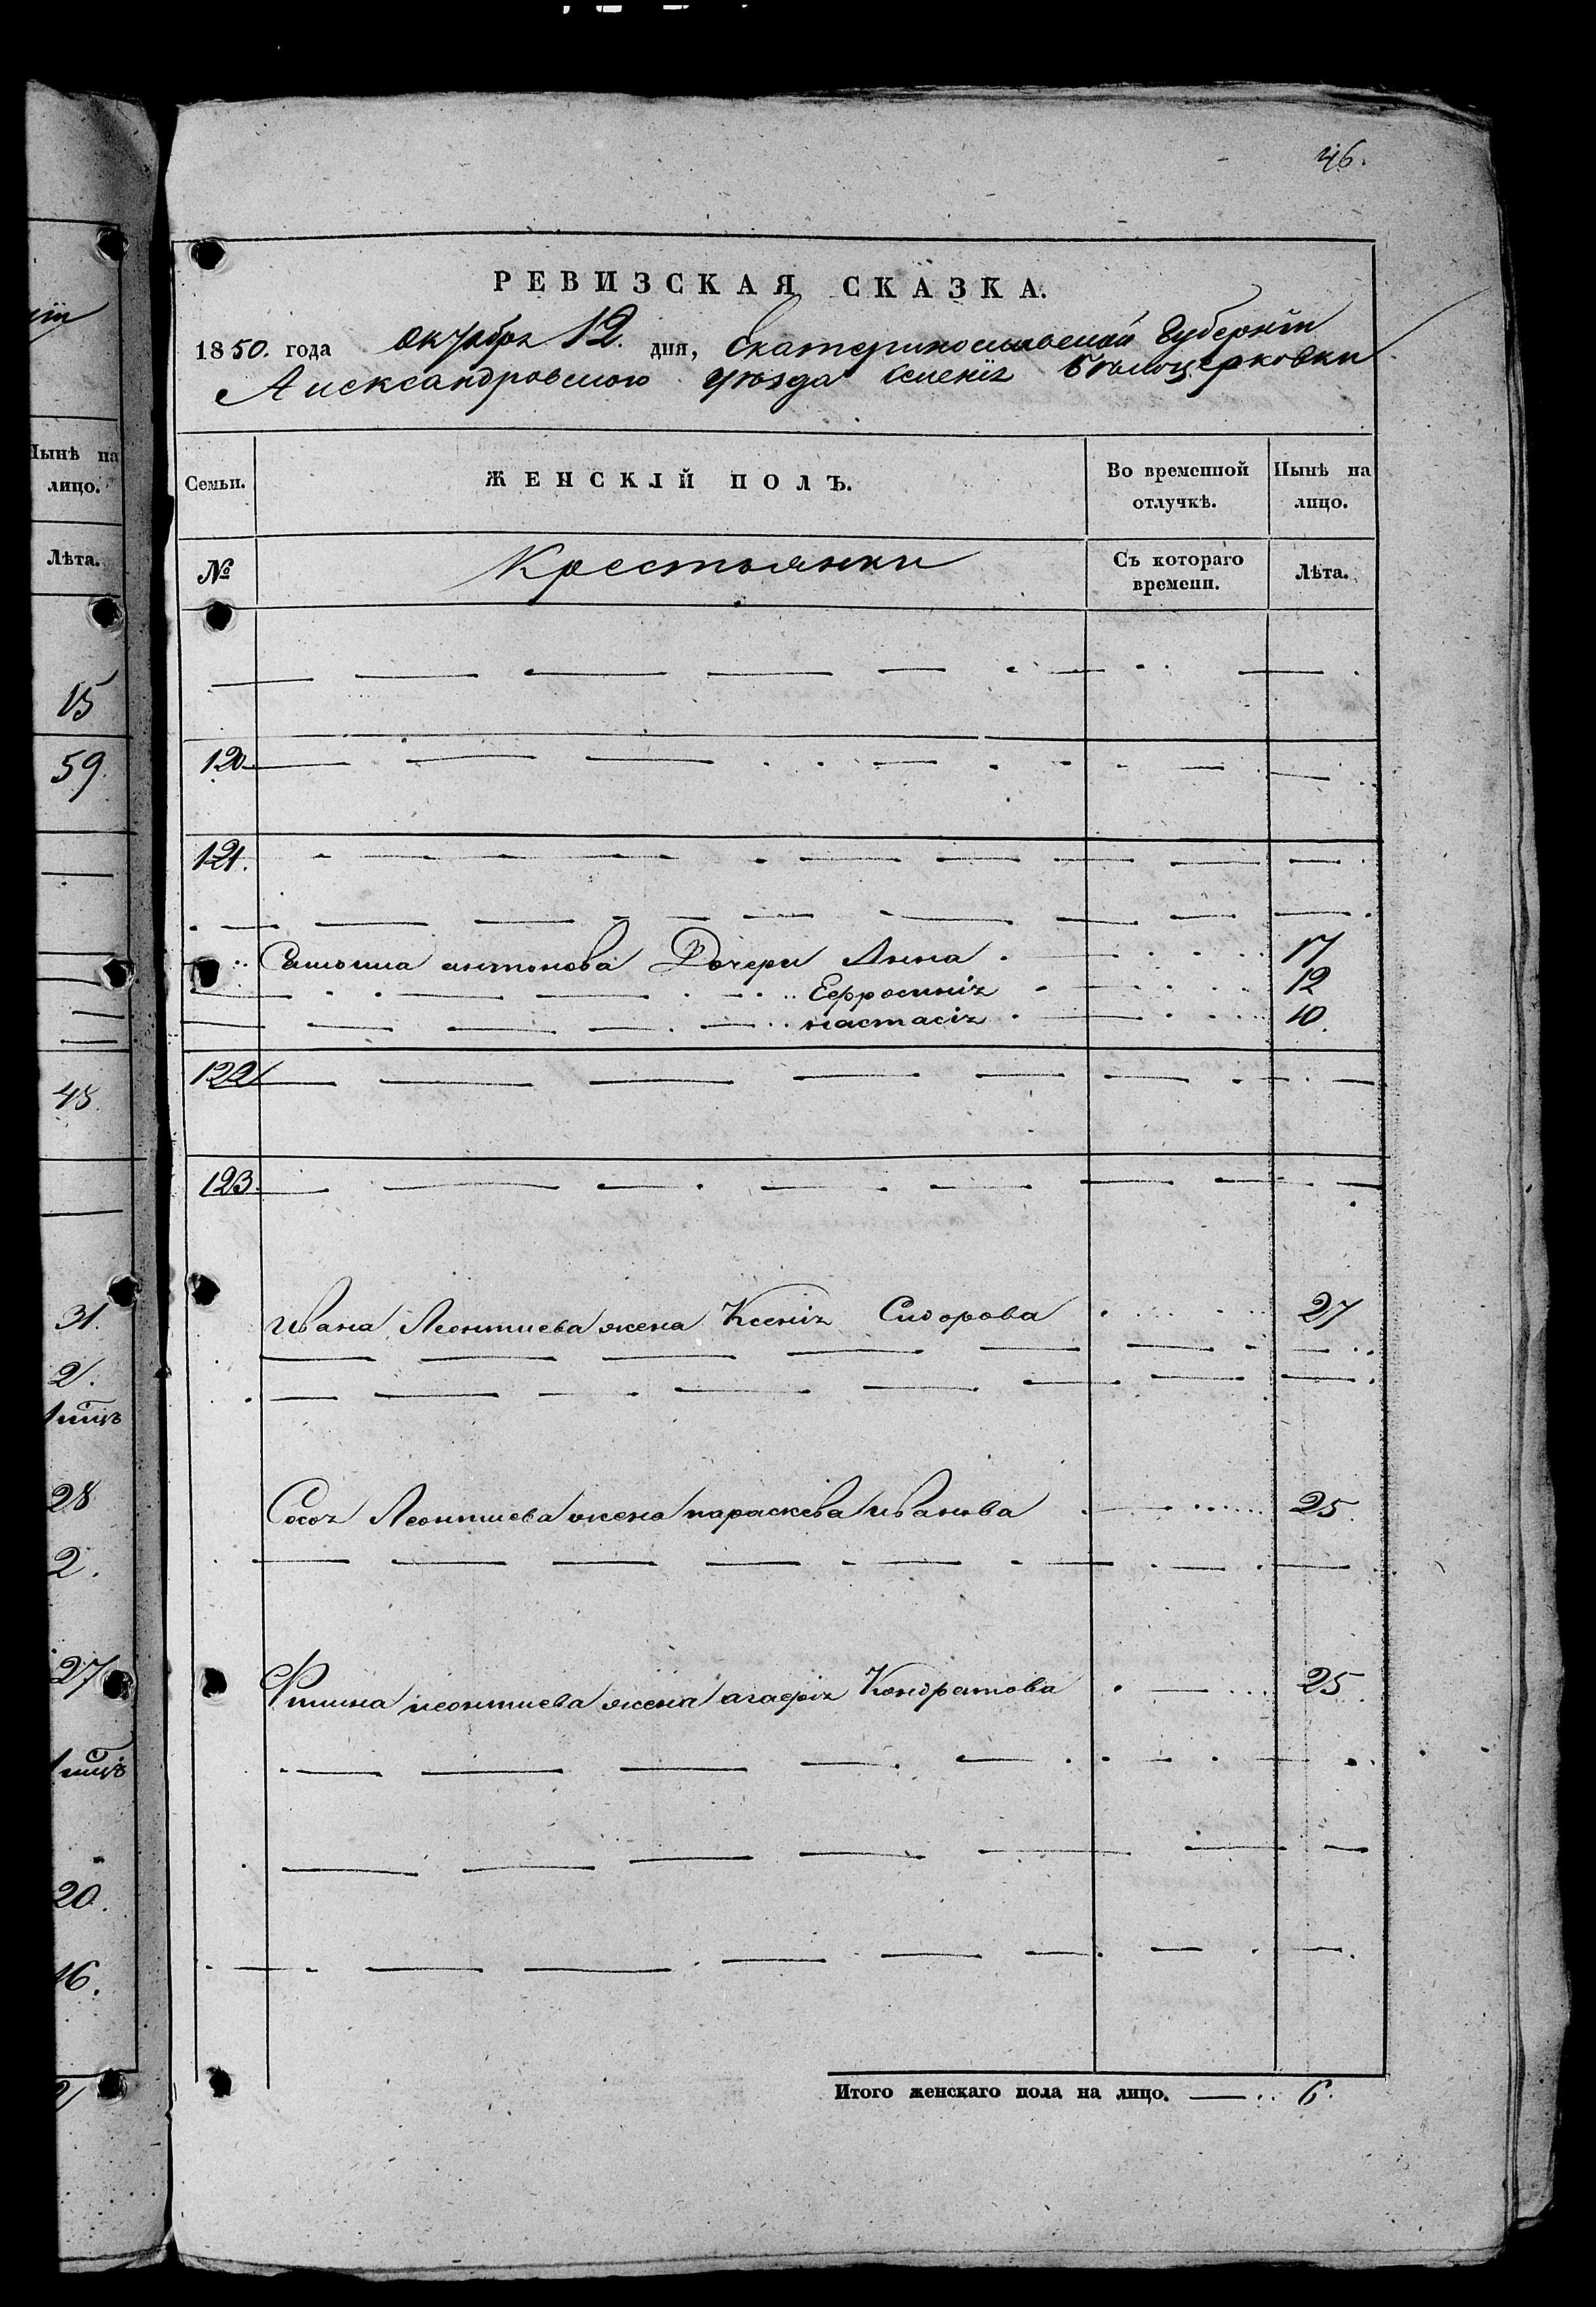 46.
РЕВИЗСКАЯ СКАЗКА.
1850. года Октября 12. дня, Екатеринославской Губернiи
Александровского уезда имения Белоцерковки
Семьи.
ЖЕНСКІЙ ПОЛЪ.
Во временной отлучкѣ.
Нынѣ на лицо.
№
Крестьянки
Съ котораго времени.
Лѣта.
120
121.
антонова Дочери Анна 17
Ефросинія 12
настасія 10.
122
123.
ивана Леонтиева жена Ксенія Сидорова 27
Леонтиева жена параскева иванова 25.
леонтиева жена агафія Кондратова 25.
Итого женскаго пола на лицо. 6.
Нынѣ на
лицо.
Лѣта.
15
59.
48.
31.
2.
28
2.
27
20.
16.